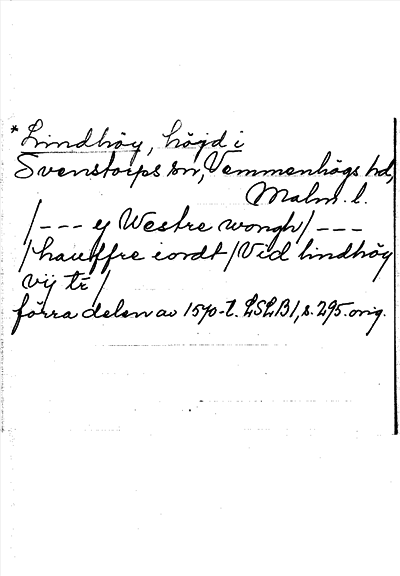 *Lindhöy, höjd i
Svenstorps sn, Vemmenhögs hd,
Malm. l.
/--- ej Westre wongh/---
/hauffre iordt/Vid lindhöy
vij tr/
förra delen av 1570-t. LSLB1, s. 295. orig.